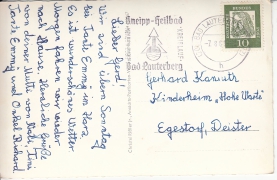 Lieber Gerd!
Wir sind übern Sonntag
bei Tante Emmy im Harz.
Es ist wunderschönes Wetter
Morgen fahren wir wieder
nach Hause. Herzliche Grüße
von deiner Mutti
Tante Emmy und Onkel Richard
Kneipp-Heilbad
Bad Lauterberg
BAD LAUTERBERG
h
10
Gerhard
Kinderheim „Hohe Warte"
Egestorf, Deister